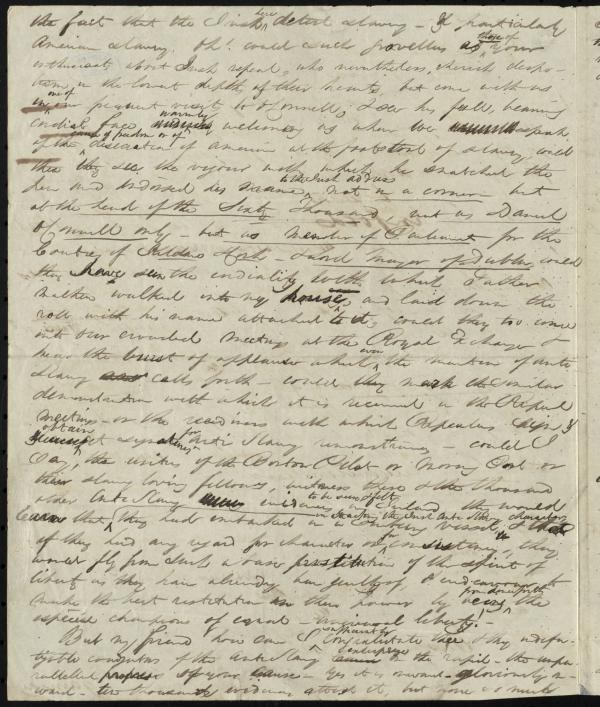 the fact that the Irish here detest slavery – & particularly
American slavery. Oh! could such grovellers as those of your
enthusiasts about Irish repeal, who nevertheless, cherish despo-
tism in the lowest depths of their hearts, but come with us
in one of our pleasant visits to O'Connell, & see his full, beaming
cordial face warmly welcoming us when we speak
of the cause of freedom or of the of America at the footstool of slavery, could
they see the vigour with which he snatched the
pen and endorsed his name, to the Irish address not in a corner – but
at the head of the Sixty Thousand, not as Daniel
O'Connell only – but as Member of Parliament for the
County of Cork – & Lord Mayor of Dublin, could
they have seen the cordiality with which Father
Mathew walked into my house, and laid down the
roll with his name attached to it, could they too come
into our crowded meetings at the Royal Exchange &
hear the burst of applause which even the mention of anti-
slavery calls forth – could they mark the similar
demonstration with which it is received in the Repeal
meetings – or the readiness with which Repealers sign &
obtain signatures to Anti Slavery remonstrances – could I
say, the writers of the Boston Pilot or Morning Post or
their slavery loving fellows, witness these & the thousand
other Anti Slavery evidences to be seen & felt in Ireland they would
learn that they had embarked in a
if they had any regard for character or consistency, they
would fly from such a base prostitution of the spirit of
liberty as they have already been guilty of & endeavour to
make the best restitution in their power by being from henceforth the
especial champions of equal – universal liberty.
But my friend how can I sufficiently congratulate thee & thy indefa-
tigable coadjutors of the Anti Slavery enterprise on the rapid – the unpa-
rallelled progress of your cause – yes it is onward – gloriously on-
ward – ten thousand evidences attest it, but none so much